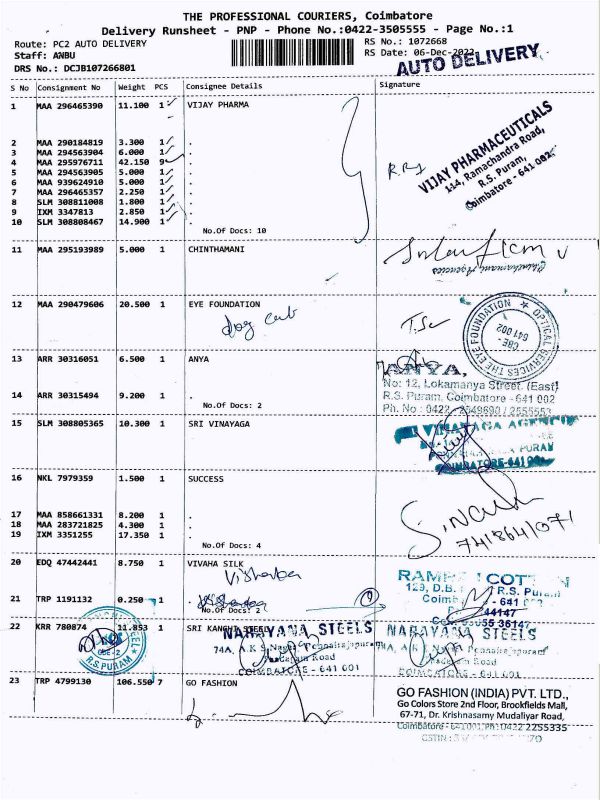 THE PROFESSIONAL COURIERS, Coimbatore
Delivery Runsheet - PNP - Phone No.:0422-3505555 - Page No.:1
Route: PC2 AUTO DELIVERY
RS No.: 1072668
Staff: ANBU
RS Date: 06-Dec-2022
DRS No.: DCJB107266801
AUTO DELIVERY
S No Consignment No Weight PCS Consignee Details Signature
1 MAA 296465390 11.100 1 VIJAY PHARMA
2 MAA 290184819 3.300 1 .
3 MAA 294563904 6.000 1 .
4 MAA 295976711 42.150 9 .
5 MAA 294563905 5.000 1 .
6 MAA 939624910 5.000 1 .
7 MAA 296465357 2.250 1 .
8 SLM 308811008 1.800 1 .
9 IXM 3347813 2.850 1 .
10 SLM 308808467 14.900 1 .
No.Of Docs: 10
VIJAY PHARMACEUTICALS
114, Ramachandra Road,
R.S. Puram,
Coimbatore - 641 002.
11 MAA 295193989 5.000 1 CHINTHAMANI
Chinthamani Agencies
12 MAA 290479606 20.500 1 EYE FOUNDATION
OPTICAL SERVICES THE EYE FOUNDATION
CBE-
641 002
13 ARR 30316051 6.500 1 ANYA
ANYA,
No: 12, Lokamanya Street, (East)
R.S. Puram, Coimbatore - 641 002
Ph. No : 0422 - 2549690 / 2555553
14 ARR 30315494 9.200 1 .
No.Of Docs: 2
15 SLM 308805365 10.300 1 SRI VINAYAGA
VINAYAGA AGENCIE
PURAM
COIMBATORE-641 00
16 NKL 7979359 1.500 1 SUCCESS
17 MAA 858661331 8.200 1 .
18 MAA 283721825 4.300 1 .
19 IXM 3351255 17.350 1 .
No.Of Docs: 4
7418641071
20 EDQ 47442441 8.750 1 VIVAHA SILK
21 TRP 1191132 0.250 1 .
No.Of Docs: 2
COTT N
129, D.B. R.S. Puram
Coimb - 641 00
44147
55 36147
22 KRR 780874 11.853 1 SRI KANGHI STEEL
CBE-2
R.S.PURAM
NARAYANA STEELS
74A, A.K.S. Nagar
Road
COIMBATORE - 641 001
NARAYANA STEELS
Road
COIMBATORE - 641 001
23 TRP 4799130 106.550 7 GO FASHION
GO FASHION (INDIA) PVT. LTD.,
Go Colors Store 2nd Floor, Brookfields Mall,
67-71, Dr. Krishnasamy Mudaliyar Road,
Coimbatore - 641001, Ph: 0422 2255335